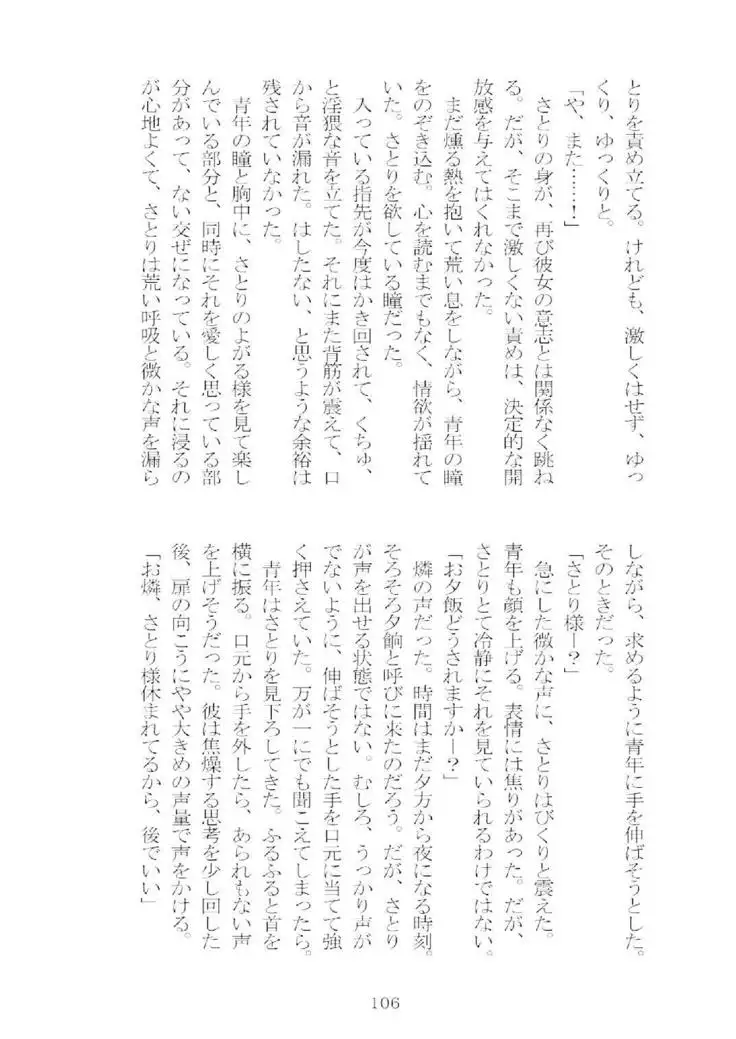 とりを責め立てる。けれども、激しくはせず、ゆっ
くり、ゆっくりと。
「や、また……！」
さとりの身が、再び彼女の意志とは関係なく跳ね
る。だが、そこまで激しくない責めは、決定的な開
放感を与えてはくれなかった。
まだ燻る熱を抱いて荒い息をしながら、青年の瞳
をのぞき込む。心を読むまでもなく、情欲が揺れて
いた。さとりを欲している瞳だった。
入っている指先が今度はかき回されて、くちゅ、
と淫猥な音を立てた。それにまた背筋が震えて、口
から音が漏れた。はしたない、と思うような余裕は
残されていなかった。
青年の瞳と胸中に、さとりのよがる様を見て楽し
んでいる部分と、同時にそれを愛しく思っている部
分があって、ない交ぜになっている。それに浸るの
が心地よくて、さとりは荒い呼吸と微かな声を漏ら
しながら、求めるように青年に手を伸ばそうとした。
そのときだった。
「さとり様ー？」
急にした微かな声に、さとりはびくりと震えた。
青年も顔を上げる。表情には焦りがあった。だが、
さとりとて冷静にそれを見ていられるわけではない。
「お夕飯どうされますかー？」
燐の声だった。時間はまだ夕方から夜になる時刻。
そろそろ夕餉と呼びに来たのだろう。だが、さとり
が声を出せる状態ではない。むしろ、うっかり声が
でないように、伸ばそうとした手を口元に当てて強
く押さえていた。万が一にでも聞こえてしまったら。
青年はさとりを見下ろしてきた。ふるふると首を
横に振る。口元から手を外したら、あられもない声
を上げそうだった。彼は焦燥する思考を少し回した
後、扉の向こうにやや大きめの声量で声をかける。
「お燐、さとり様休まれてるから、後でいい」
106